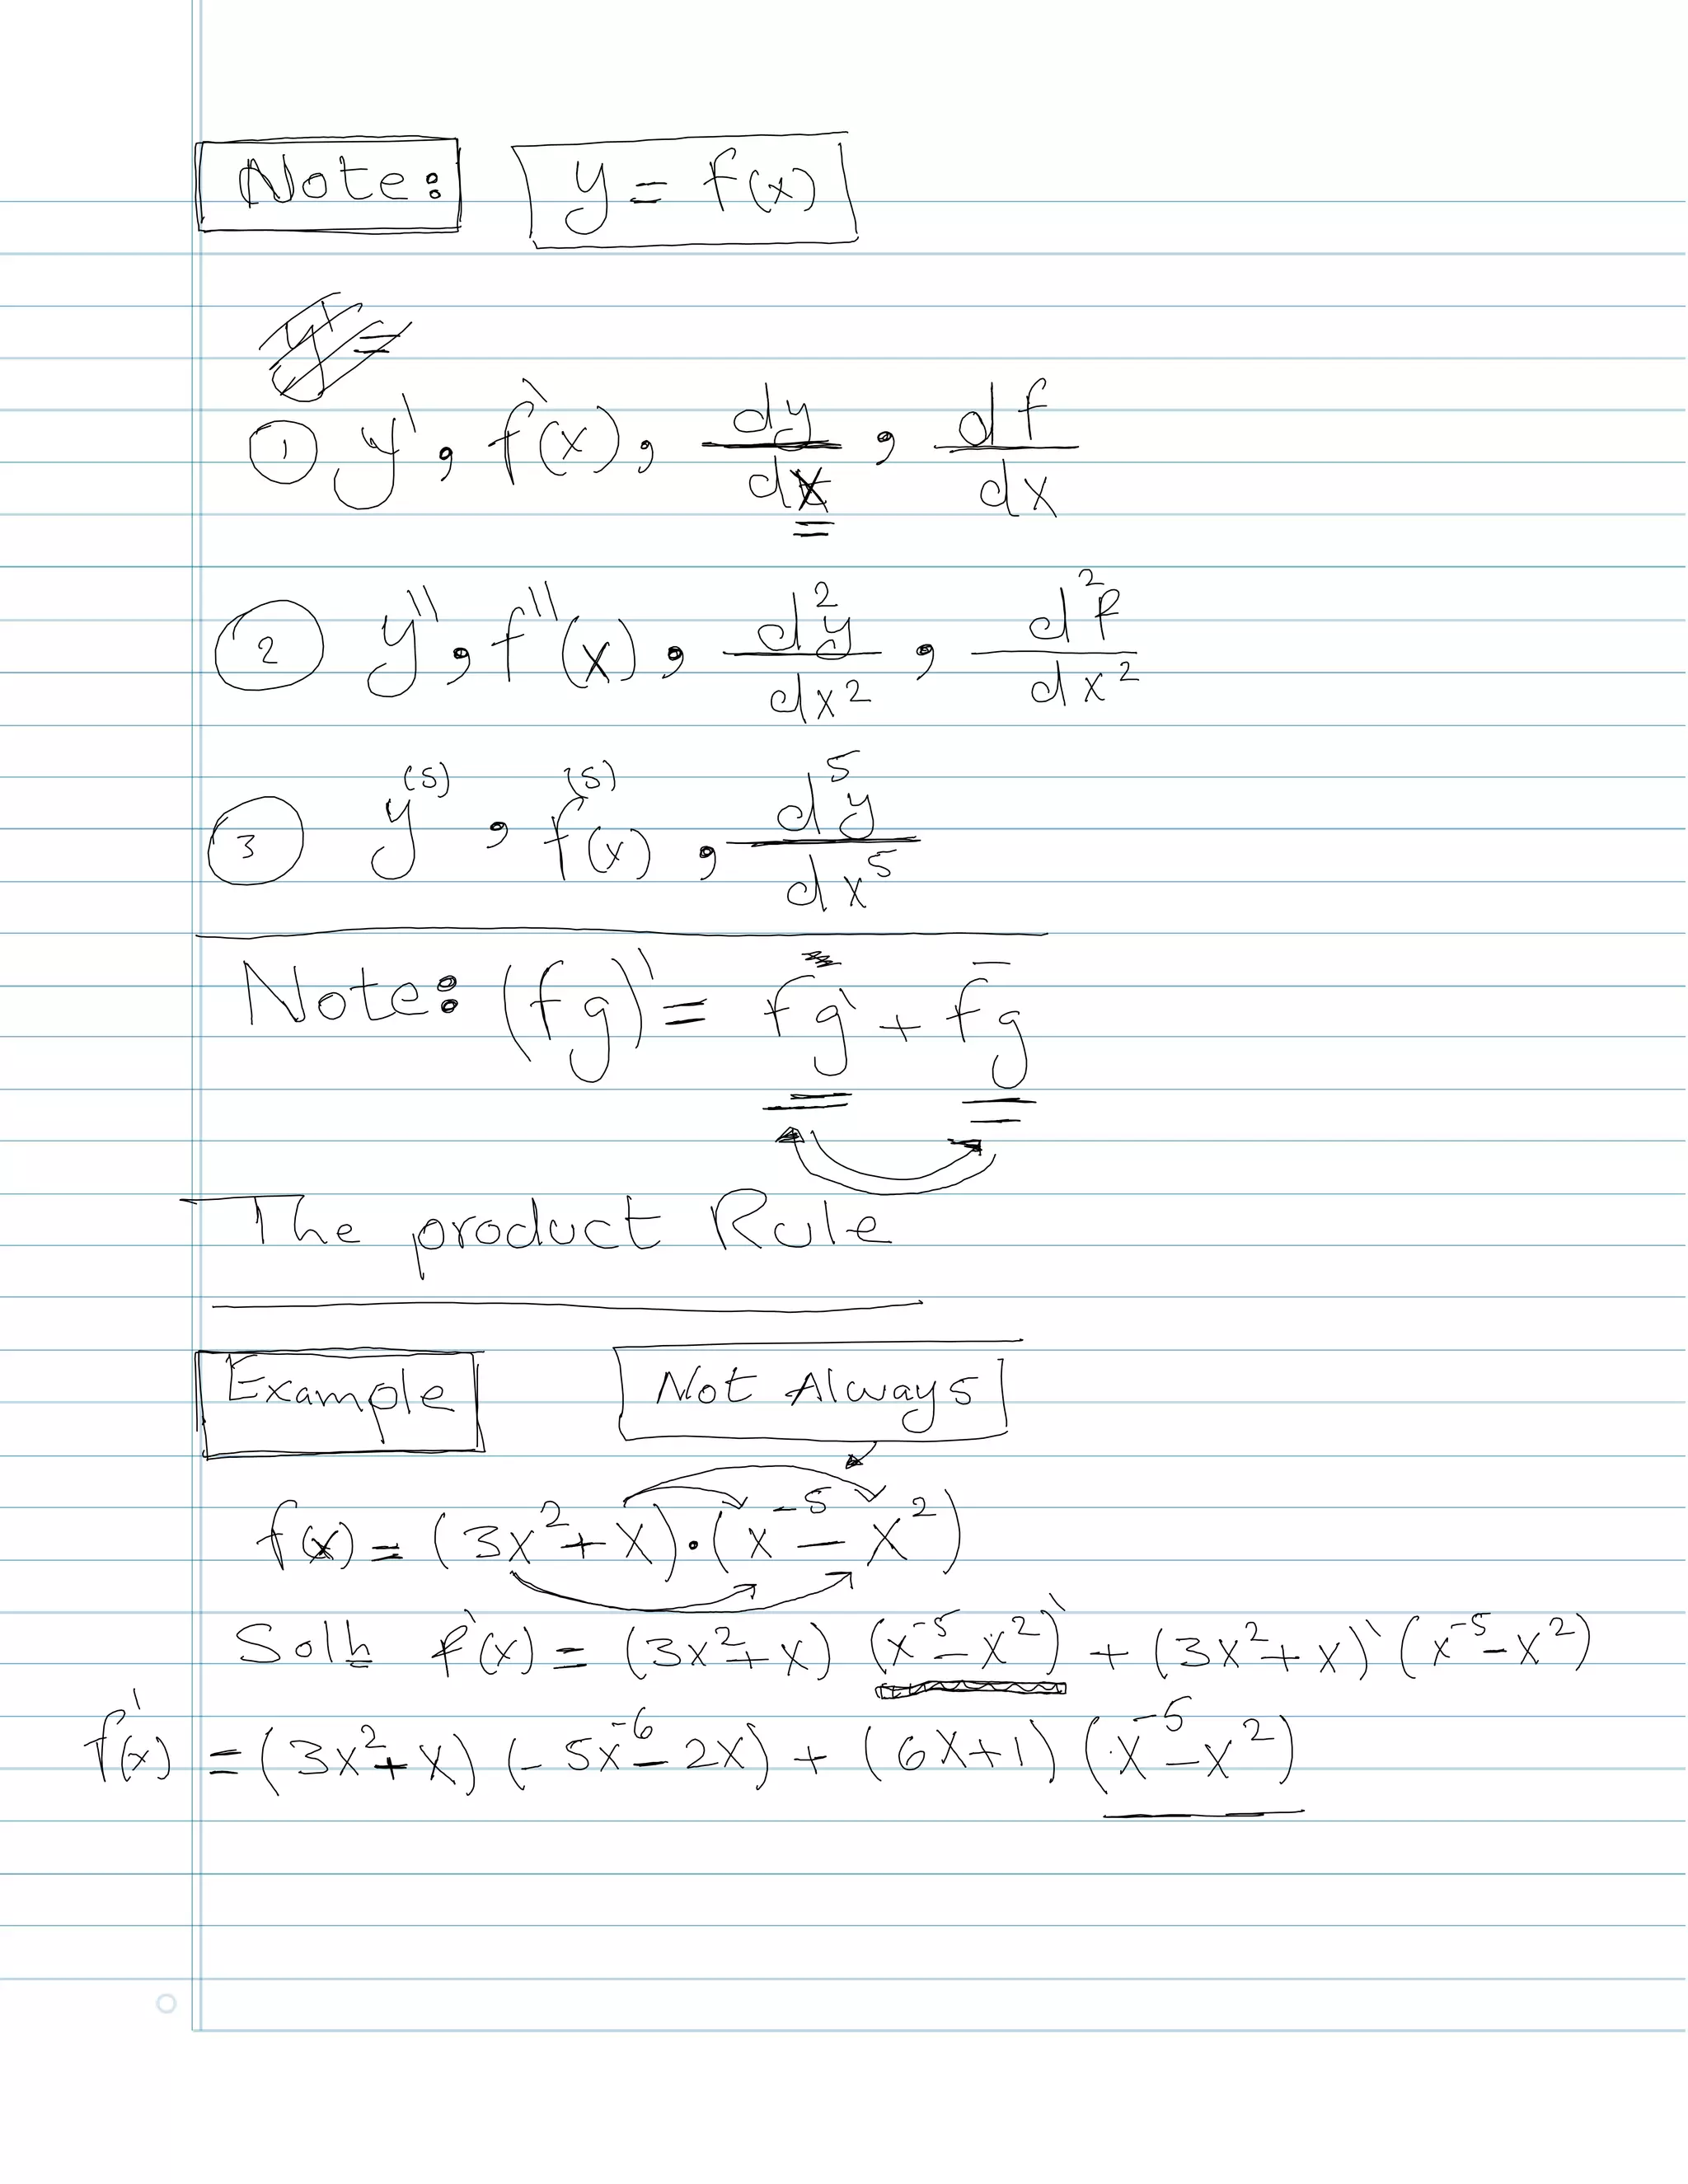 Note: y = f(x)
y' =
① y' , f'(x) , dy/dx , df/dx
② y'' , f''(x) , d²y/dx² , d²f/dx²
③ y⁽⁵⁾ , f⁽⁵⁾(x) , d⁵y/dx⁵
Note: (fg)' = fg' + fg
The product Rule
Example Not Always
f(x) = (3x² + x) · (x⁻⁵ − x²)
Soln f'(x) = (3x² + x) (x⁻⁵ − x²)' + (3x² + x)' (x⁻⁵ − x²)
f'(x) = (3x² + x) (− 5x⁻⁶ − 2x) + (6x + 1) (x⁻⁵ − x²)